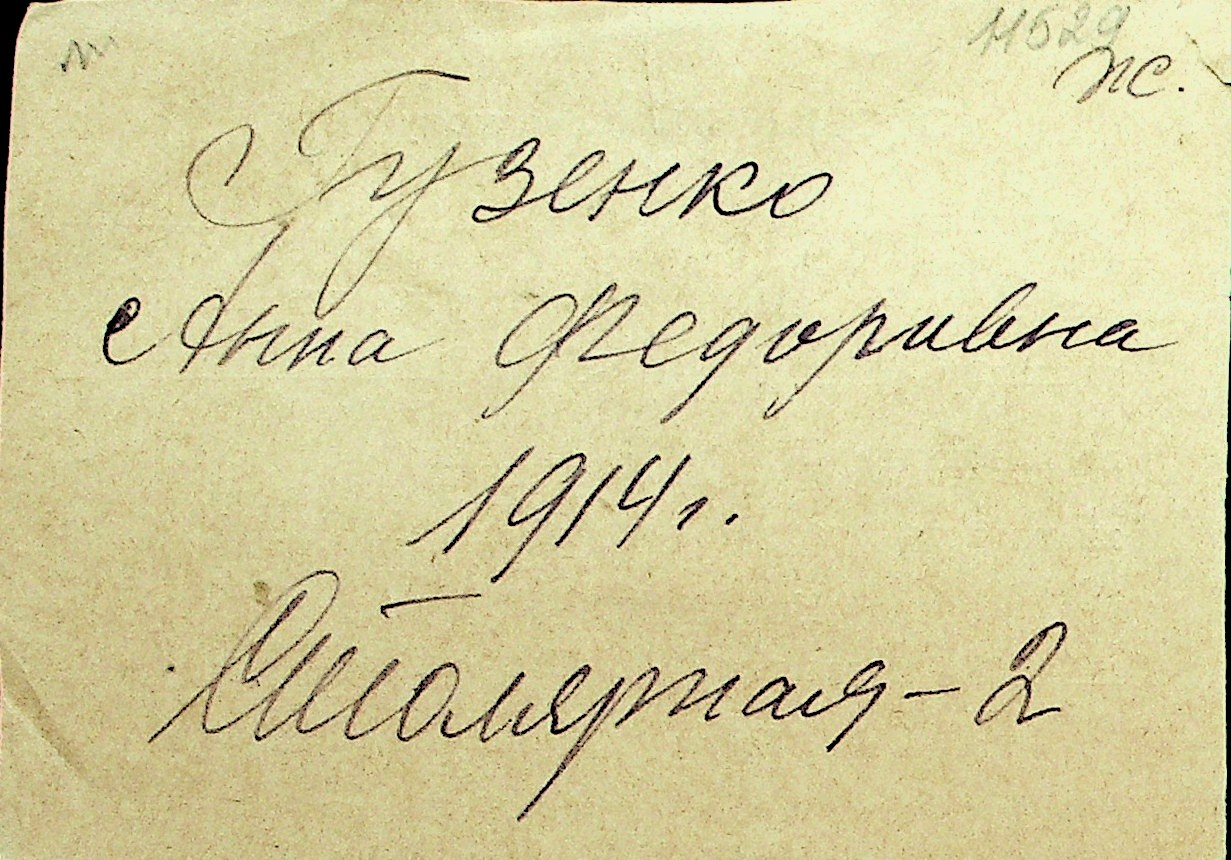 11629
ж.
Гузенко
Анна Федоривна
1914 г.
Столярная-2